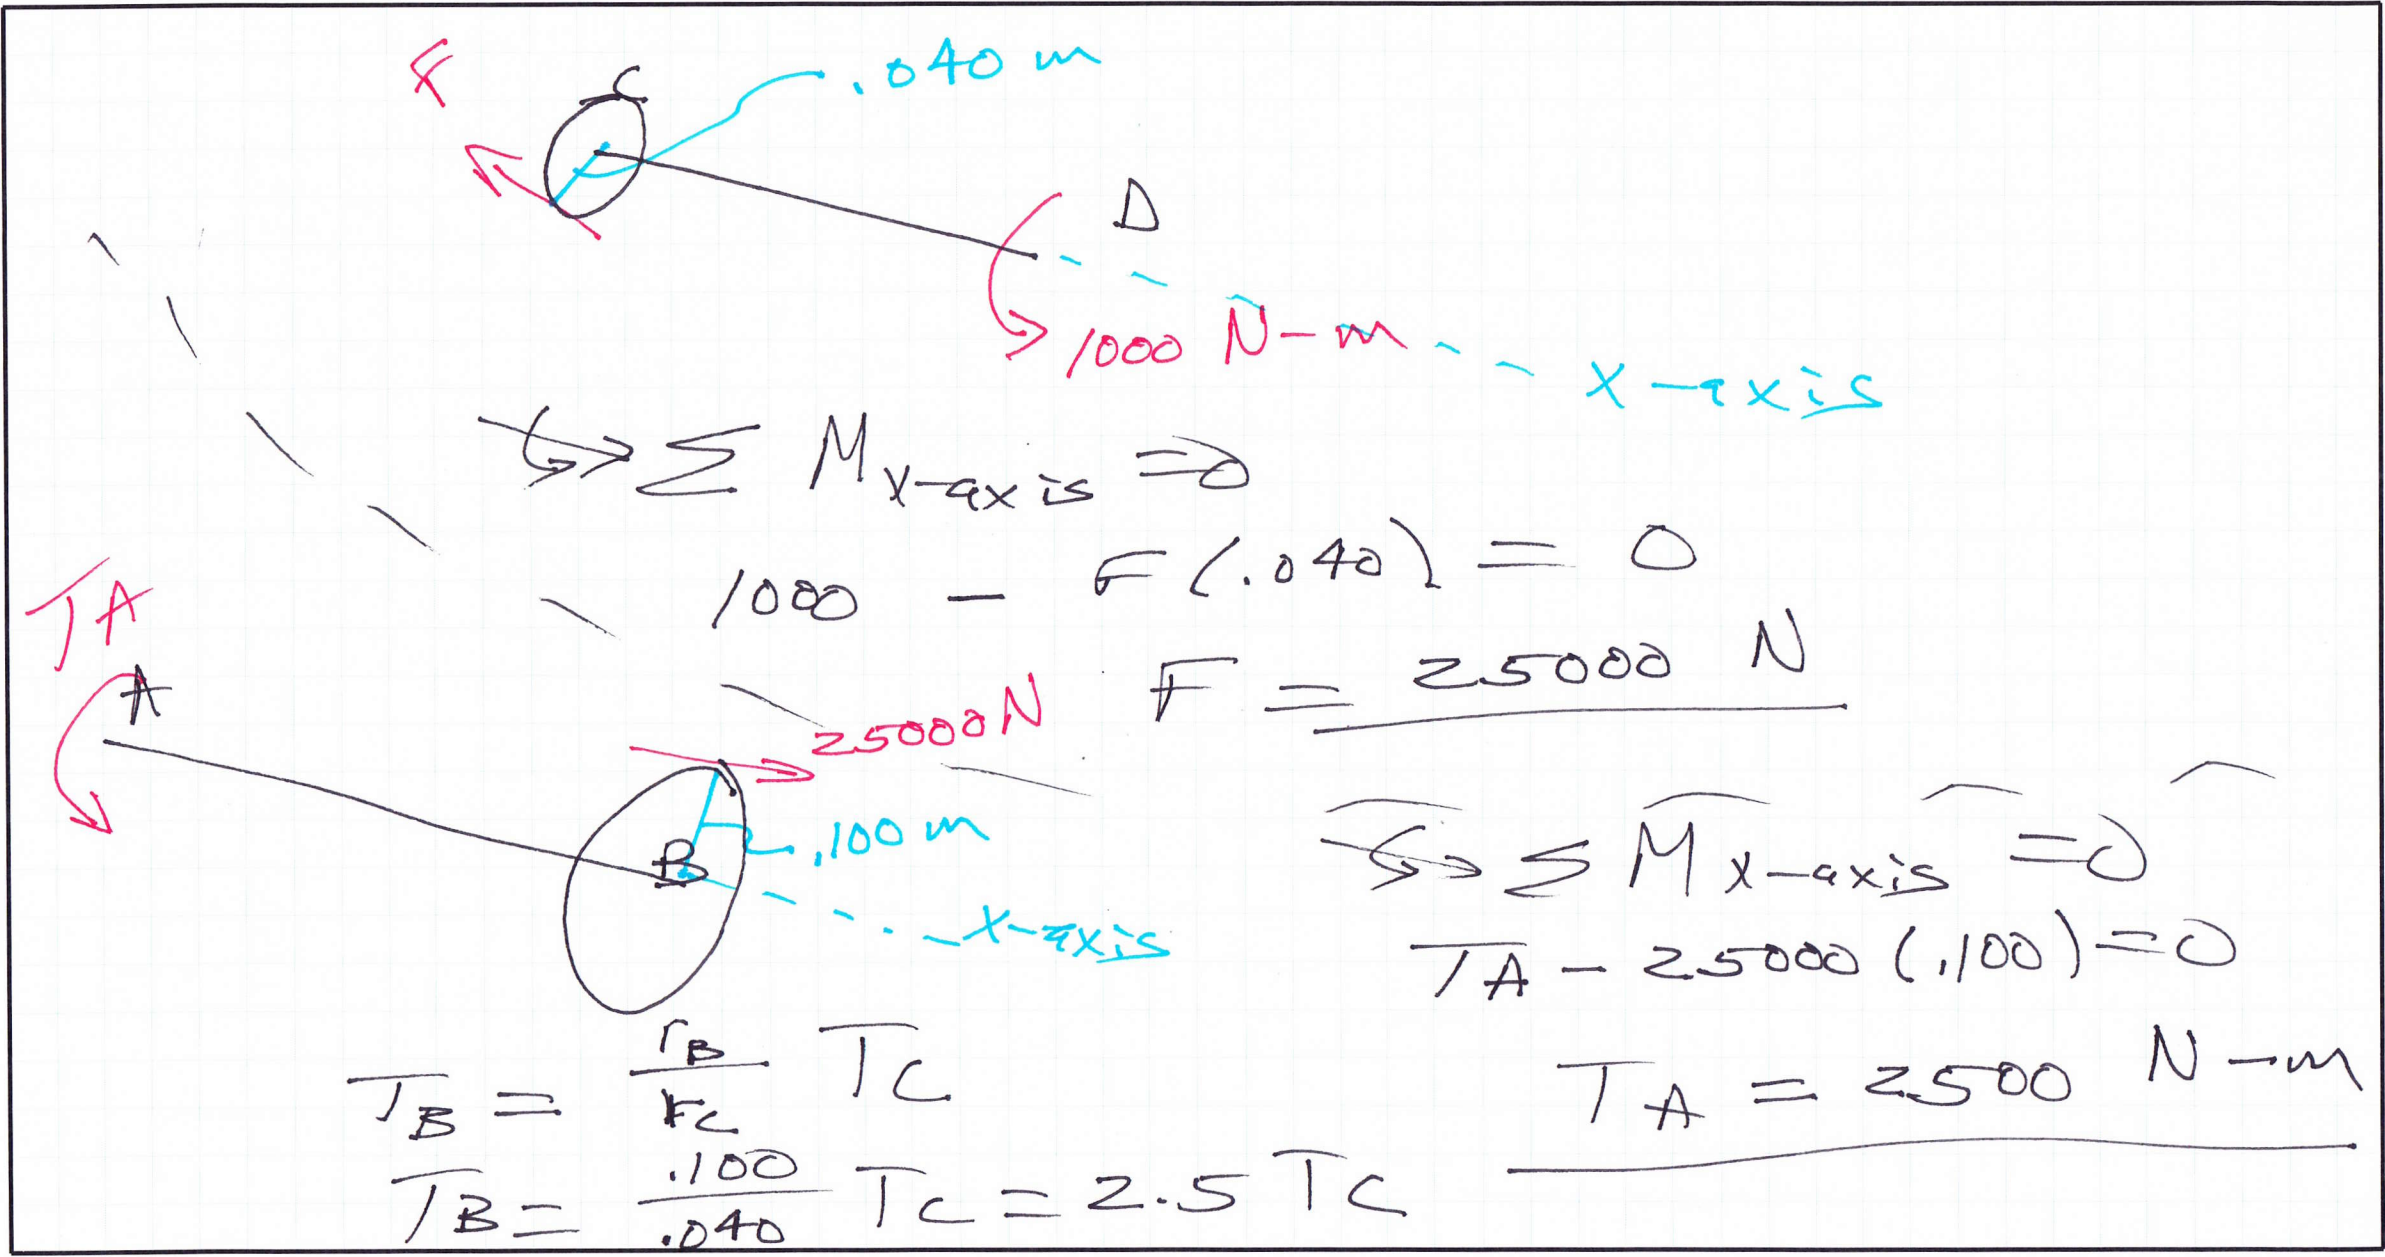 F
C
.040 m
D
1000 N-m
x-axis
Σ M x-axis = 0
1000 - F(.040) = 0
F = 25000 N
TA
A
25000 N
B
.100 m
x-axis
Σ M x-axis = 0
TA - 25000 (.100) = 0
TA = 2500 N-m
TB = rB/rC TC
TB = .100/.040 TC = 2.5 TC